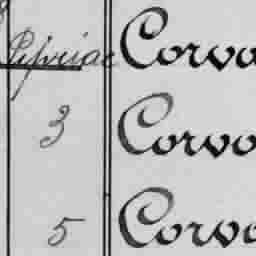 Corvo
3 Corvo
5 Corvo